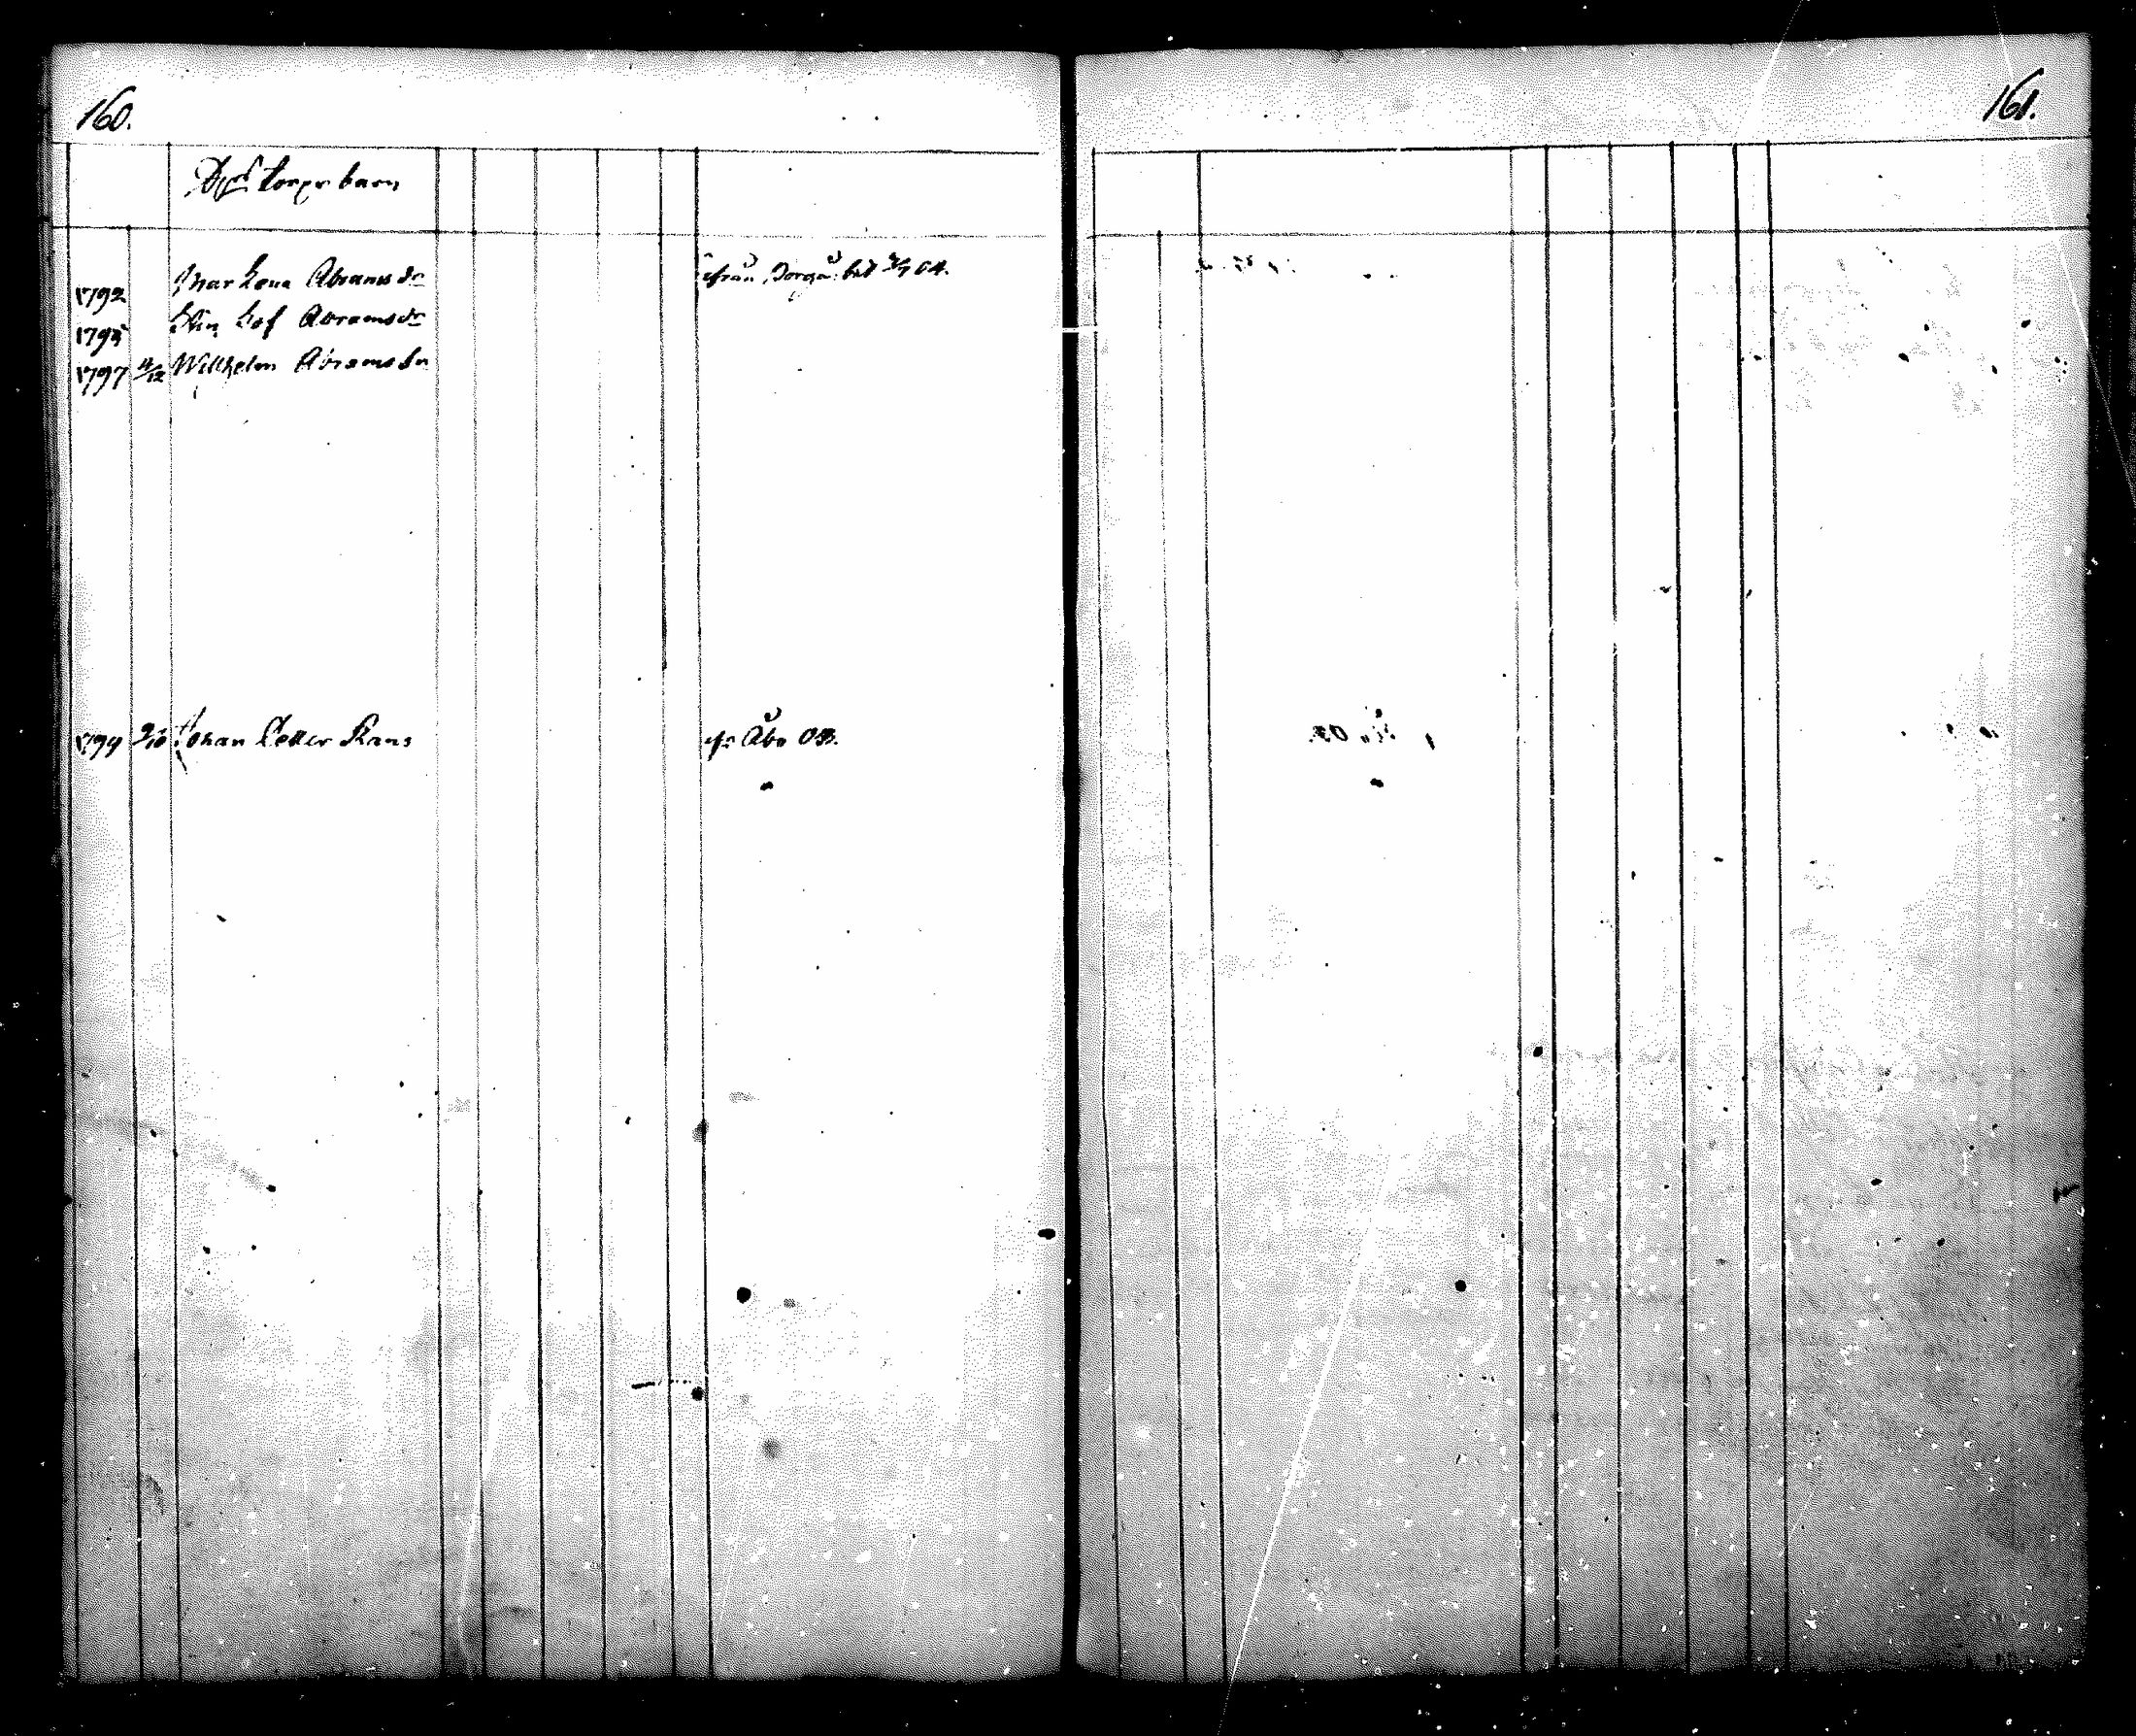 160.
161.
Torpr barn
1792 Mar Lena Abrams dr från Borgå
1795 Elin Sof Abrams dr
1797 Willhelm Abrams Sn
1799 9/10 Johan Petter Rans fr Åbo 03.